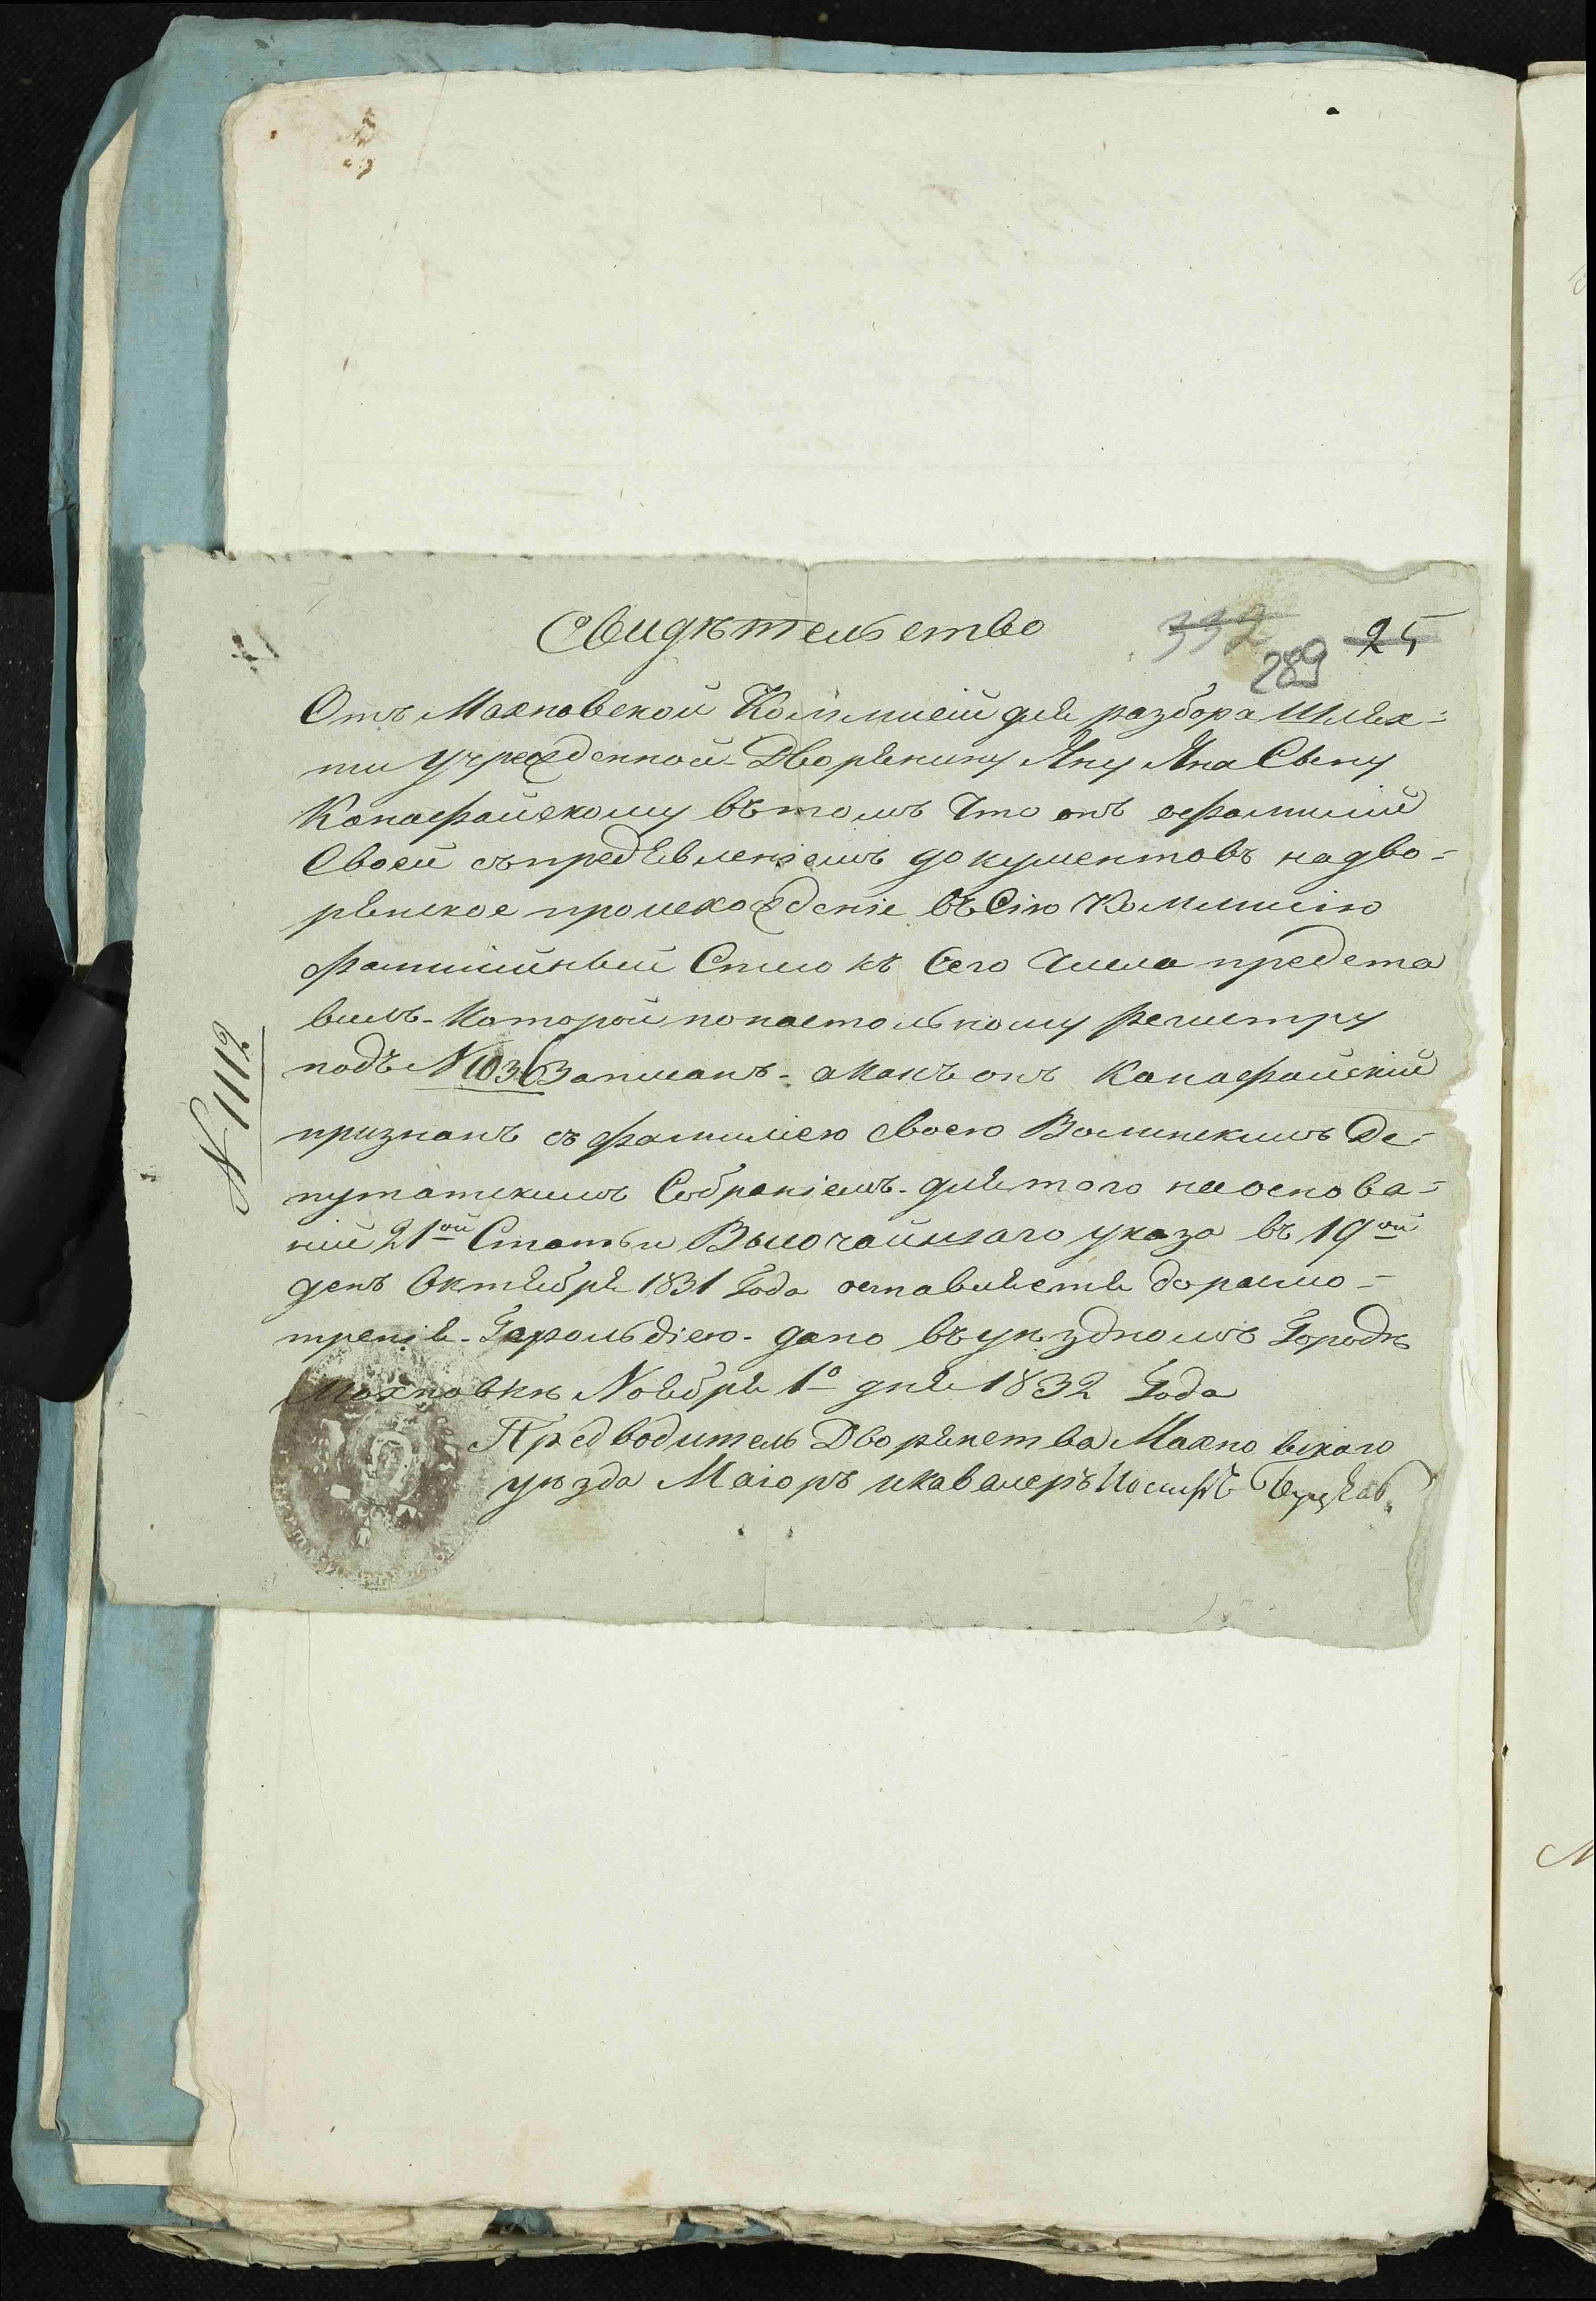 Свидѣтельство
392 25
289
Отъ Махновской Коммисіи для разбора Шлях-
ты Учрежденной Дворянину Яну Яна Сыну
Канафойскому въ томъ Что онъ о фамиліи
Своей съ предъявленіемъ документовъ на дво-
рянское происхожденіе въ Сію Коммисію
фамилійный Списокъ Сего Числа предста
вилъ - Которой по настольному регистру
подъ N 1036 Записанъ - а какъ онъ Канафойскій
признанъ съ фамиліею своею Волынскимъ Де-
путатскимъ Собраніемъ - для того на основа-
ніи 21ой Статьи Высочайшаго указа въ 19ой
день Октября 1831 Года оставляется до разсмо-
тренія - Герольдіею - дано въ уѣздномъ Городѣ
Махновкѣ Ноября 1º дня 1832 Года
Предводитель Дворянства Махновскаго
уѣзда Маіоръ и кавалеръ Іосифъ
N 1112